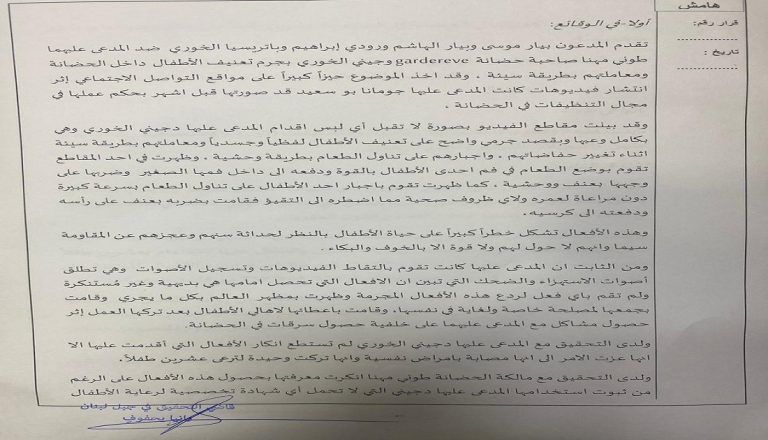 هامش
قرار رقم:
تاريخ :
أولاً-في الوقائع:
تقدم المدعون بيار موسى وبيار الهاشم ورودي إبراهيم وباتريسيا الخوري ضد المدعى عليهما
طوني مهنا صاحبة حضانة gardereve وجيني الخوري بجرم تعنيف الأطفال داخل الحضانة
ومعاملتهم بطريقة سيئة . وقد اخذ الموضوع حيزاً كبيراً على مواقع التواصل الاجتماعي إثر
انتشار فيديوهات كانت المدعى عليها جومانا بو سعيد قد صورتها قبل اشهر بحكم عملها في
مجال التنظيفات في الحضانة .
وقد بينت مقاطع الفيديو بصورة لا تقبل أي لبس اقدام المدعى عليها دجيني الخوري وهي
بكامل وعيها وبقصد جرمي واضح على تعنيف الأطفال لفظياً وجسدياً ومعاملتهم بطريقة سيئة
اثناء تغيير حفاضاتهم . واجبارهم على تناول الطعام بطريقة وحشية . وظهرت في احد المقاطع
تقوم بوضع الطعام في فم احدى الأطفال بالقوة ودفعه الى داخل فمها الصغير وضربها على
وجهها بعنف ووحشية . كما ظهرت تقوم باجبار احد الأطفال على تناول الطعام بسرعة كبيرة
دون مراعاة لعمره ولاي ظروف صحية مما اضطره الى التقيؤ فقامت بضربه بعنف على رأسه
ودفعته الى كرسيه .
وهذه الأفعال تشكل خطراً كبيراً على حياة الأطفال بالنظر لحداثة سنهم وعجزهم عن المقاومة
سيما وانهم لا حول لهم ولا قوة الا بالخوف والبكاء .
ومن الثابت ان المدعى عليها كانت تقوم بالتقاط الفيديوهات وتسجيل الأصوات وهي تطلق
أصوات الاستهزاء والضحك التي تبين ان الافعال التي تحصل امامها هي بديهية وغير مُستنكرة
ولم تقم باي فعل لردع هذه الأفعال المجرمة وظهرت بمظهر العالم بكل ما يجري وقامت
بجمعها لمصلحة خاصة ولغاية في نفسها. وقامت باعطائها لاهالي الأطفال بعد تركها العمل إثر
حصول مشاكل مع المدعى عليهما على خلفية حصول سرقات في الحضانة.
ولدى التحقيق مع المدعى عليها دجيني الخوري لم تستطع انكار الأفعال التي أقدمت عليها الا
انها عزت الامر الى انها مصابة بامراض نفسية وانها تركت وحيدة لترعى عشرين طفلاً.
ولدى التحقيق مع مالكة الحضانة طوني مهنا انكرت معرفتها بحصول هذه الأفعال على الرغم
من ثبوت استخدامها المدعى عليها دجيني التي لا تحمل أي شهادة تخصصية لرعاية الأطفال
قاضي التحقيق في جبل لبنان